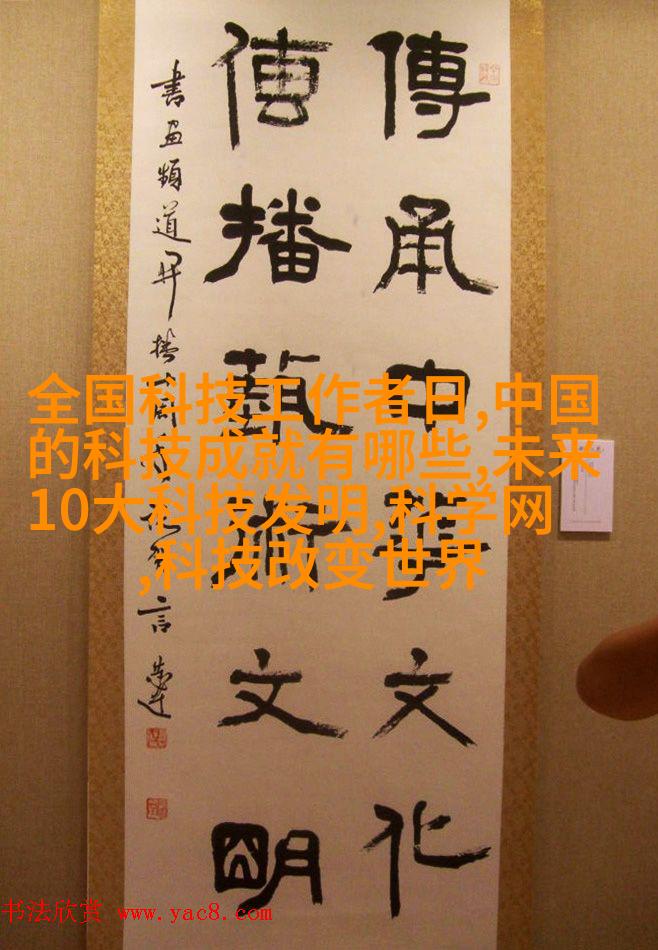 傳承中華文化
傳播藝術文明
書画頻道開播
言
全国科技工作者日,中国
的科技成就有哪些,未来
10大科技发明,科学网
,科技改变世界
书法欣赏 www.yac8.com